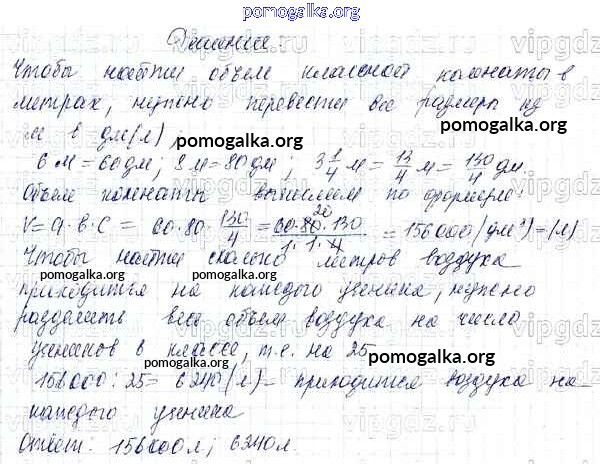 pomogalka.org
Решение:
Чтобы найти объем классной комнаты в
литрах, нужно перевести все размеры из
м в дм(л)
pomogalka.org
pomogalka.org
6 м = 60 дм; 8 м = 80 дм; 3 1/4 м = 13/4 м = 130/4 дм.
Объем комнаты вычисляем по формуле:
V = a · b · c = 60 · 80 · 130/4 = 60 · 80 · 130 / 1 · 1 · 4 = 156000 (дм³) = (л)
20
Чтобы найти сколько литров воздуха
pomogalka.org
pomogalka.org
приходится на каждого ученика, нужно
разделить весь объем воздуха на число
учеников в классе, т.е. на 25
pomogalka.org
156000 : 25 = 6240 (л) – приходится воздуха на
каждого ученика
pomogalka.org
Ответ: 156000 л; 6240 л.